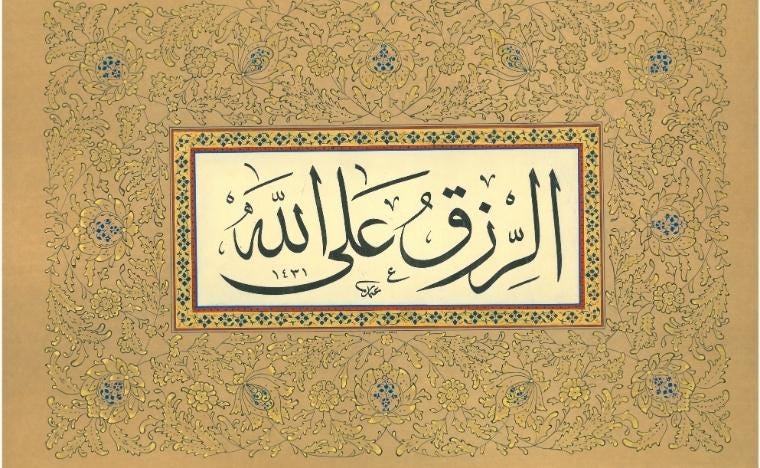 الرِّزقُ عَلَى اللّٰه
١٤٣١